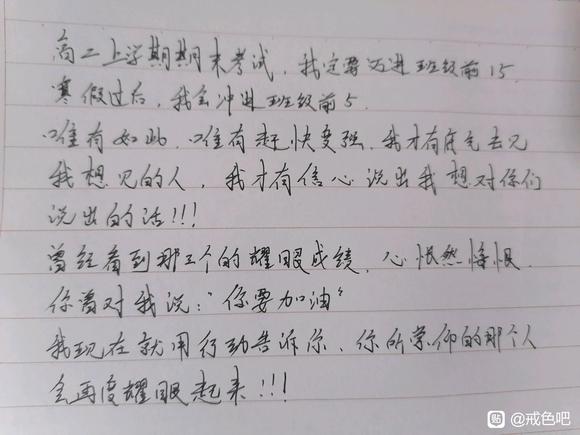 高二上学期期末考试，我定要迈进班级前15.
寒假过后，我会冲进班级前5.
唯有如此，唯有赶快变强，我才有底气去见
我想见的人，我才有信心说出我想对你们
说出的话!!!
曾经看到那三个的耀眼成绩，心恨然悔恨.
你曾对我说："你要加油"
我现在就用行动告诉你、你所崇仰的那个人
会再度耀眼起来!!!
贴 @戒色吧